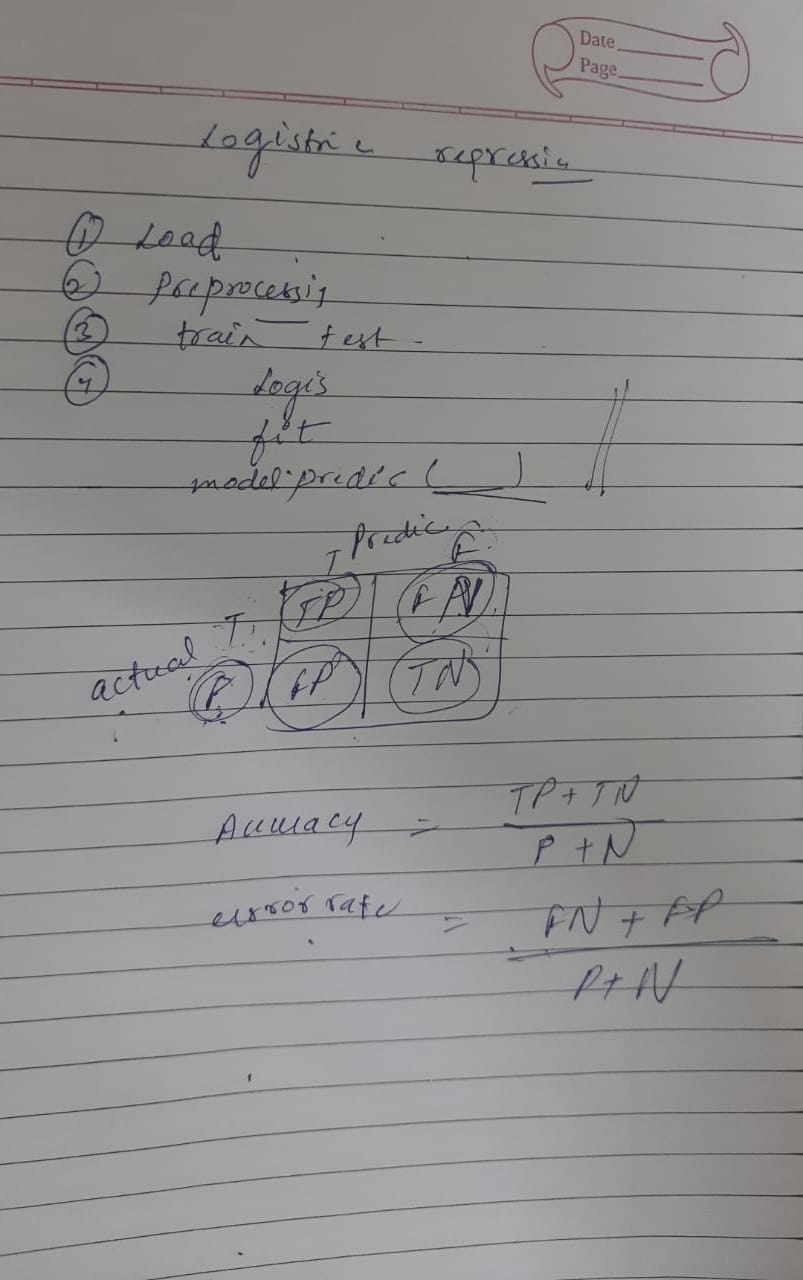 Date
Page
Logistric regressin
① Load
② Preprocessig
③ train test
④ Logis
fit
model.predic ( )
Predic
T F
actual T TP FN
F FP TN
Accuracy = TP + TN
P + N
error rate = FN + FP
P + N